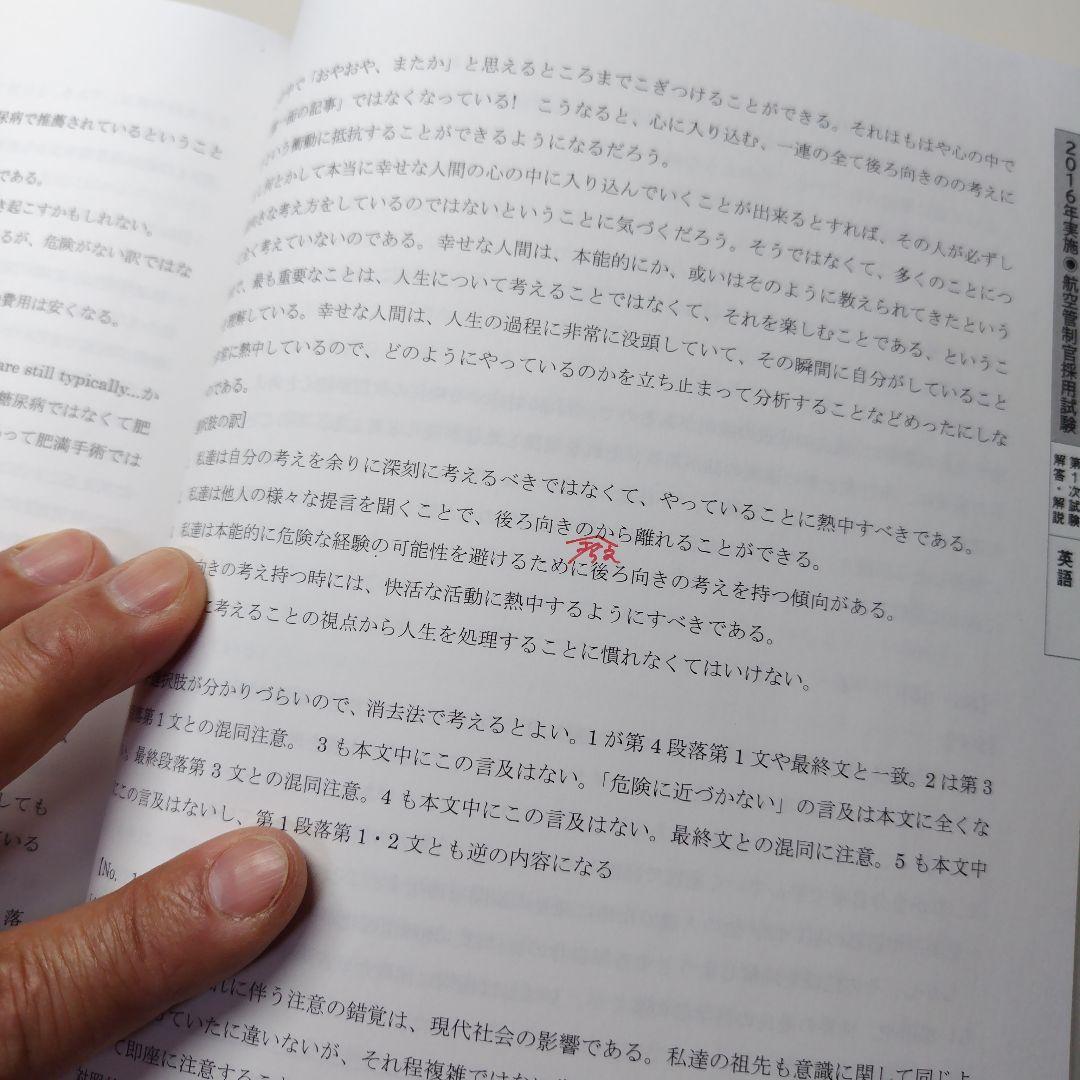 尿病で推薦されているということ
である。
き起こすかもしれない。
るが、危険がない訳ではな
費用は安くなる。
are still typically...か
糖尿病ではなくて肥
って肥満手術では
しても
いる
落
で「おやおや、またか」と思えるところまでこぎつけることができる。それはもはや心の中で
の記事」ではなくなっている! こうなると、心に入り込む、一連の全て後ろ向きのの考えに
いう衝動に抵抗することができるようになるだろう。
何とかして本当に幸せな人間の心の中に入り込んでいくことが出来るとすれば、その人が必ずし
きな考え方をしているのではないということに気づくだろう。そうではなくて、多くのことにつ
く考えていないのである。幸せな人間は、本能的にか、或いはそのように教えられてきたという
で、最も重要なことは、人生について考えることではなくて、それを楽しむことである、というこ
理解している。幸せな人間は、人生の過程に非常に没頭していて、その瞬間に自分がしていること
常に熱中しているので、どのようにやっているのかを立ち止まって分析することなどめったにしな
のである。
択肢の訳]
私達は自分の考えを余りに深刻に考えるべきではなくて、やっていることに熱中すべきである。
私達は他人の様々な提言を聞くことで、後ろ向きのから離れることができる。
考え
私達は本能的に危険な経験の可能性を避けるために後ろ向きの考えを持つ傾向がある。
向きの考え持つ時には、快活な活動に熱中するようにすべきである。
に考えることの視点から人生を処理することに慣れなくてはいけない。
選択肢が分かりづらいので、消去法で考えるとよい。1が第4段落第1文や最終文と一致。2は第3
落第1文との混同注意。 3も本文中にこの言及はない。「危険に近づかない」の言及は本文に全くな
い。最終段落第3文との混同注意。4も本文中にこの言及はない。最終文との混同に注意。5も本文中
にこの言及はないし、第1段落第1・2文とも逆の内容になる
[No. 1
れに伴う注意の錯覚は、現代社会の影響である。私達の祖先も意識に関して同じよ
っていたに違いないが、それ程複雑ではない
て即座に注意するこ
2016年実施●航空管制官採用試験
第1次試験
解答・解説
英語